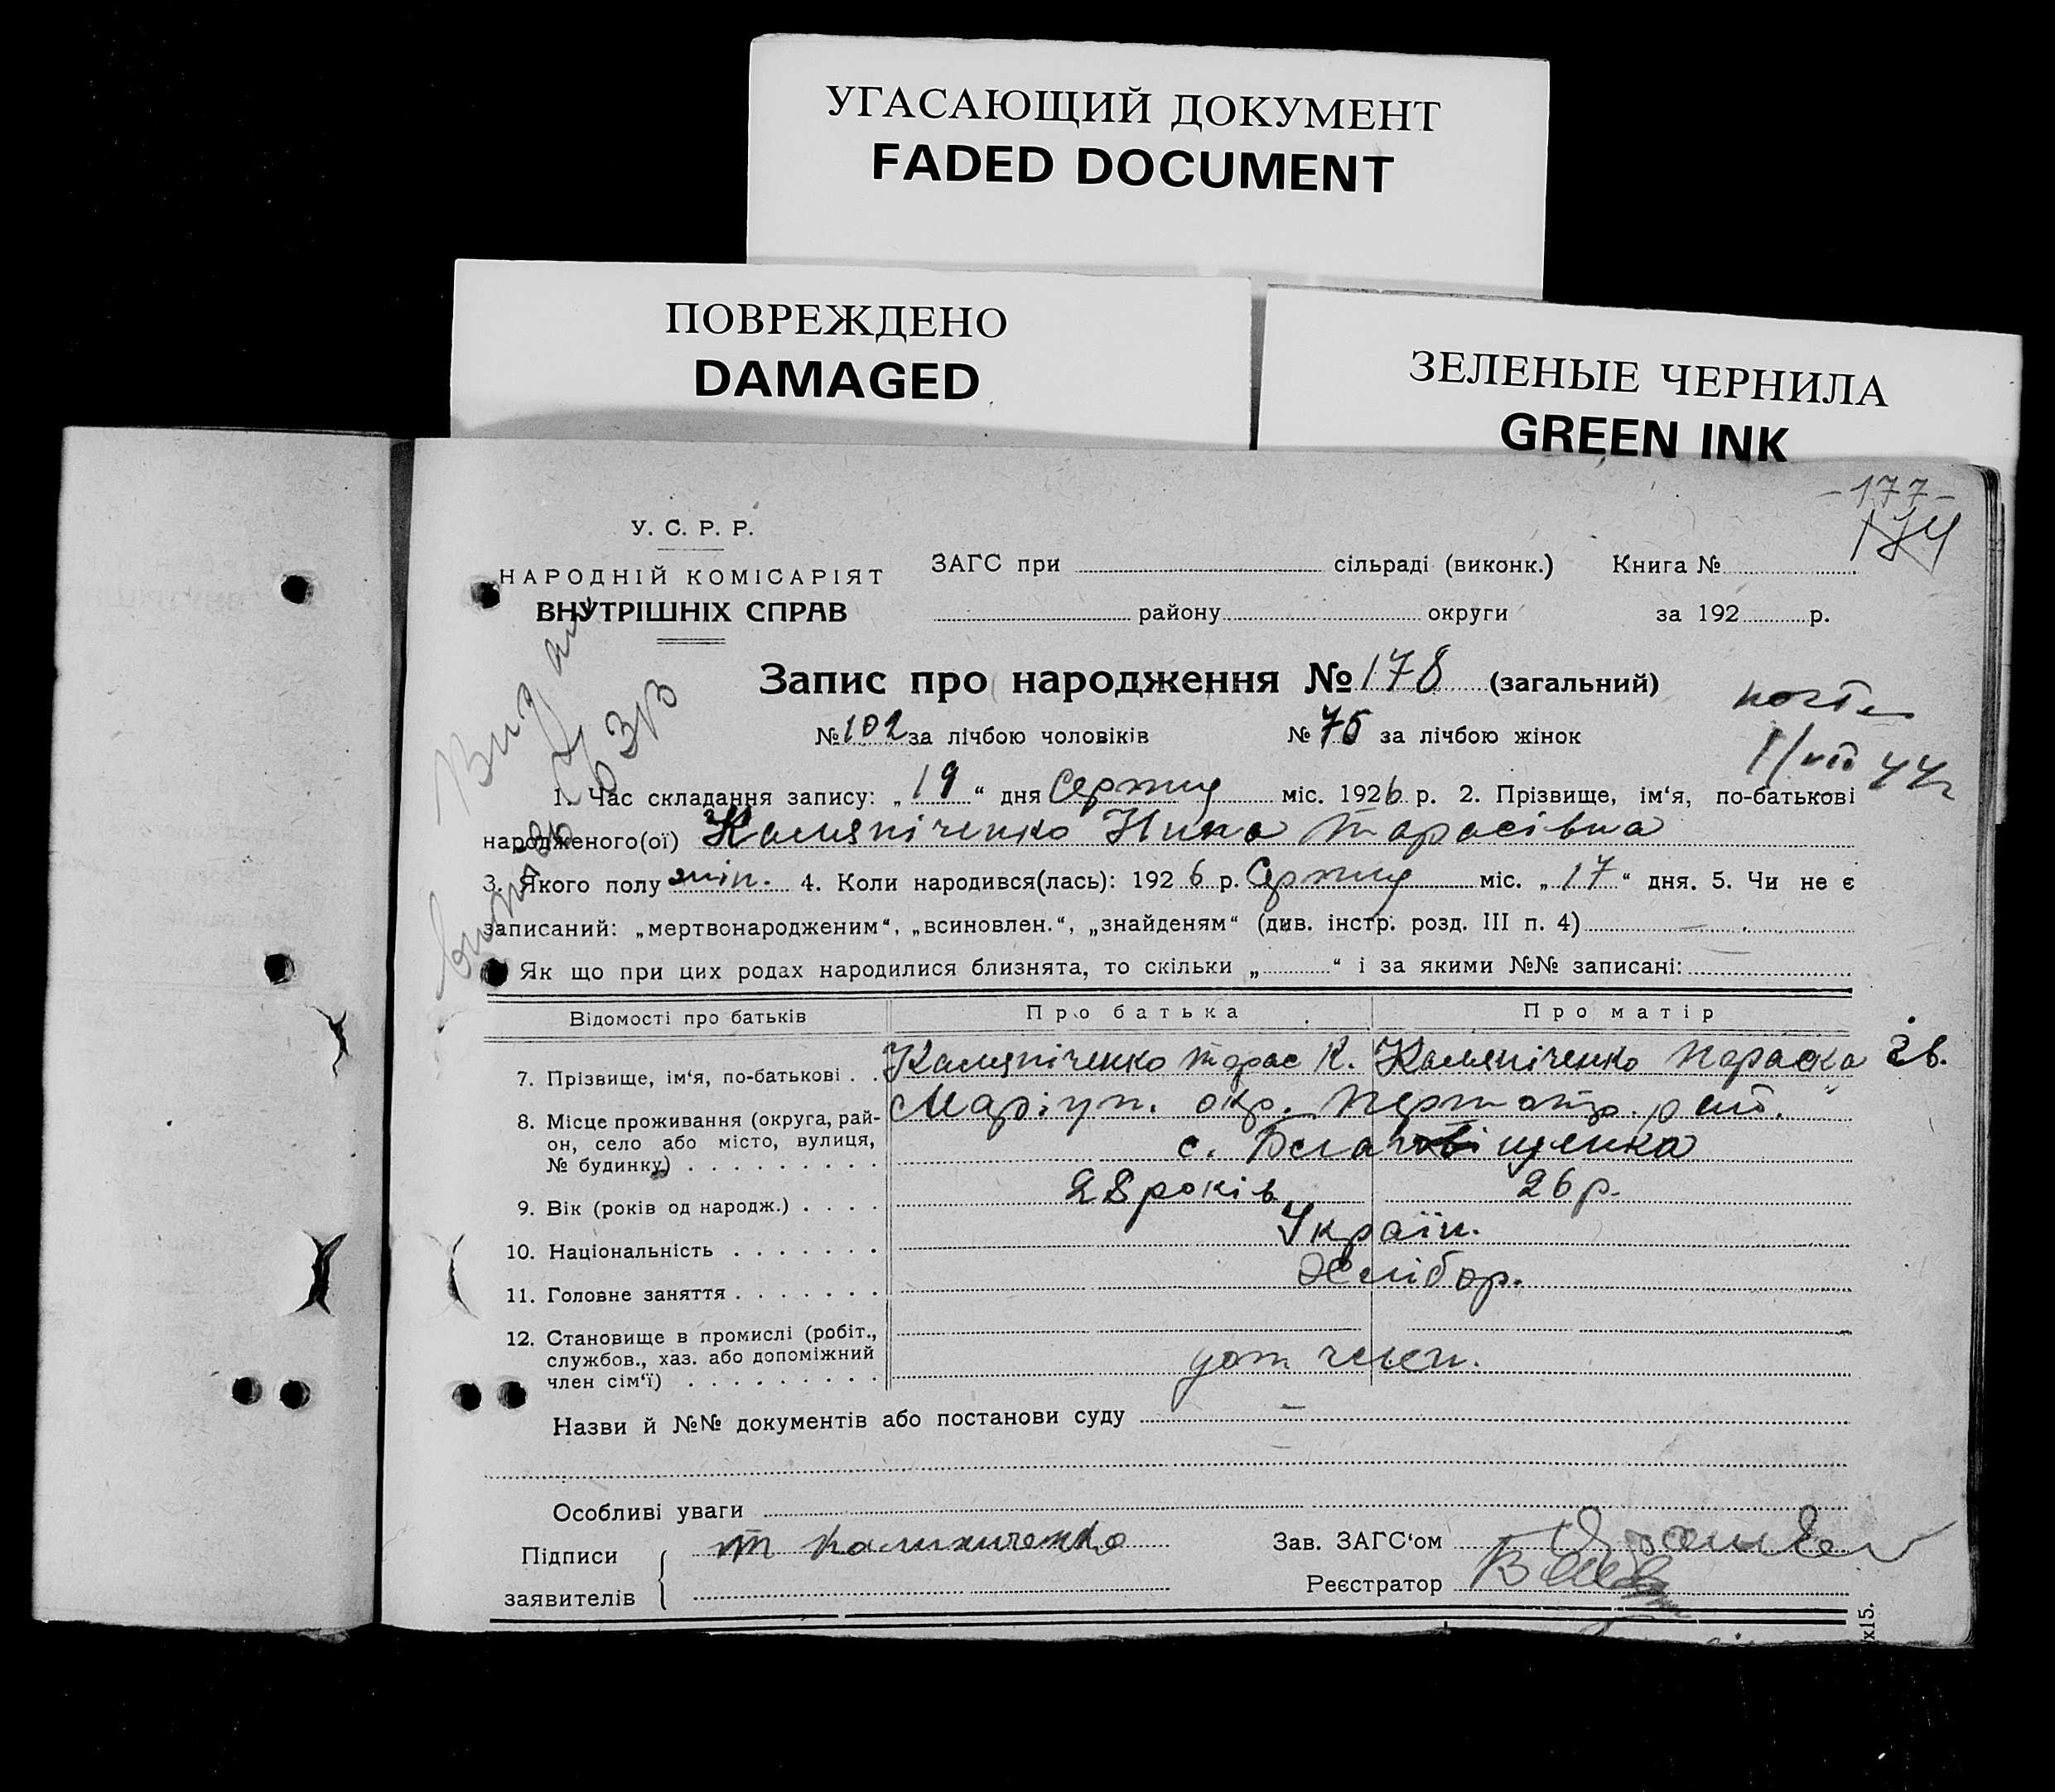 УГАСАЮЩИЙ ДОКУМЕНТ
FADED DOCUMENT
ПОВРЕЖДЕНО
DAMAGED
ЗЕЛЕНЫЕ ЧЕРНИЛА
GREEN INK
-177-
174
У. С. Р. Р.
НАРОДНІЙ КОМІСАРІЯТ
ВНУТРІШНІХ СПРАВ
ЗАГС при сільраді (виконк.) Книга №
району округи за 192 р.
Запис про народження № 178 (загальний)
№ 102 за лічбою чоловіків № 76 за лічбою жінок
1. Час складання запису: „ 19 “ дня Серпня міс. 1926 р. 2. Прізвище, ім‘я, по-батькові
народженого(ої) Нина Тарасівна
3. Якого полу жін. 4. Коли народився(лась): 192 6 р. Серпня міс. „ 17 “ дня. 5. Чи не є
записаний: „мертвонародженим“, „всиновлен.“, „знайденям“ (див. інстр. розд. III п. 4)
Як що при цих родах народилися близнята, то скільки „ “ і за якими №№ записані:
Відомості про батьків
Про батька
Про матір
7. Прізвище, ім‘я, по-батькові . . Тарас К. Параска
8. Місце проживання (округа, рай- Маріуп. окр.
он, село або місто, вулиця, с.
№ будинку)
9. Вік (років од народж.) 28 років 26 р.
10. Національність Україн.
11. Головне заняття Хлібор.
12. Становище в промислі (робіт.,
службов., хаз. або допоміжний член.
член сім‘ї)
Назви й №№ документів або постанови суду —
Особливі уваги
Підписи Т
заявителів
Зав. ЗАГС‘ом
Реєстратор
х15.